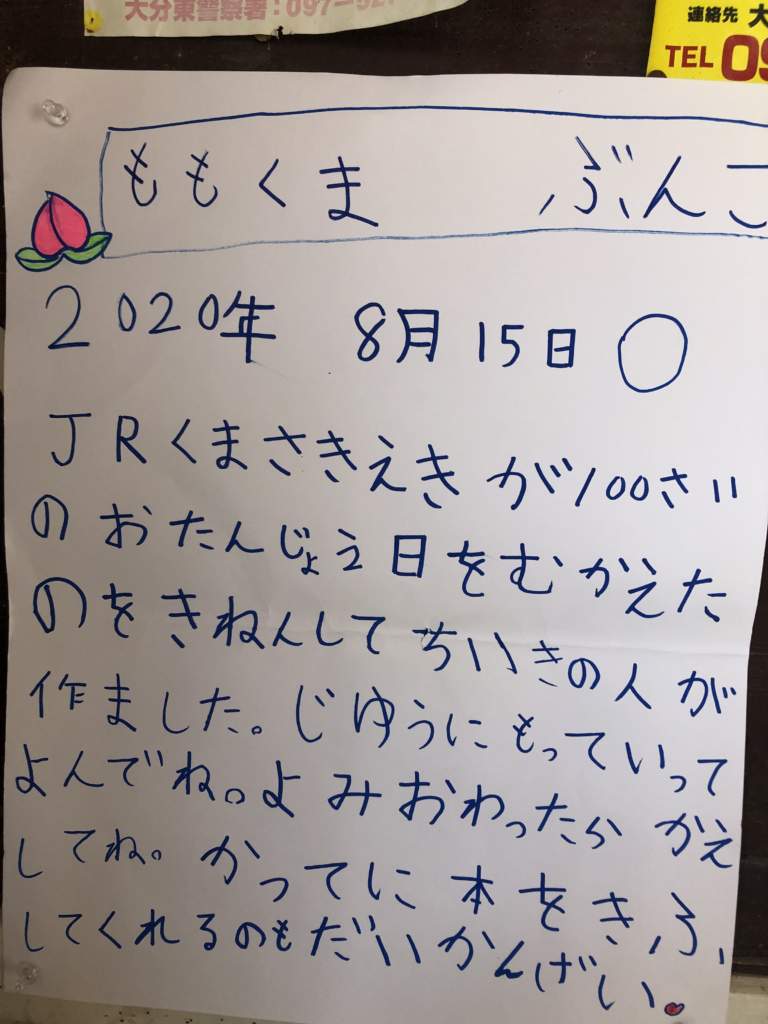 大分東警察署:097-527
連絡先 大
TEL 09
ももくま ぶんこ
2020年 8月15日
JRくまさきえきが100さい
のおたんじょう日をむかえた
のをきねんしてちいきの人が
作ました。じゆうにもっていって
よんでね。よみおわったらかえ
してね。かってに本をきふ
してくれるのもだいかんげい。